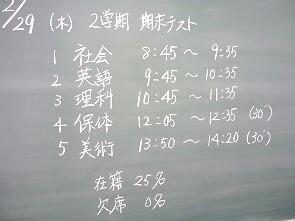 2/29 (木) 2学期 期末テスト
1 社会 8:45 ～ 9:35
2 英語 9:45 ～ 10:35
3 理科 10:45 ～ 11:35
4 保体 12:05 ～ 12:35 (30')
5 美術 13:50 ～ 14:20 (30')
在籍 25%
欠席 0%